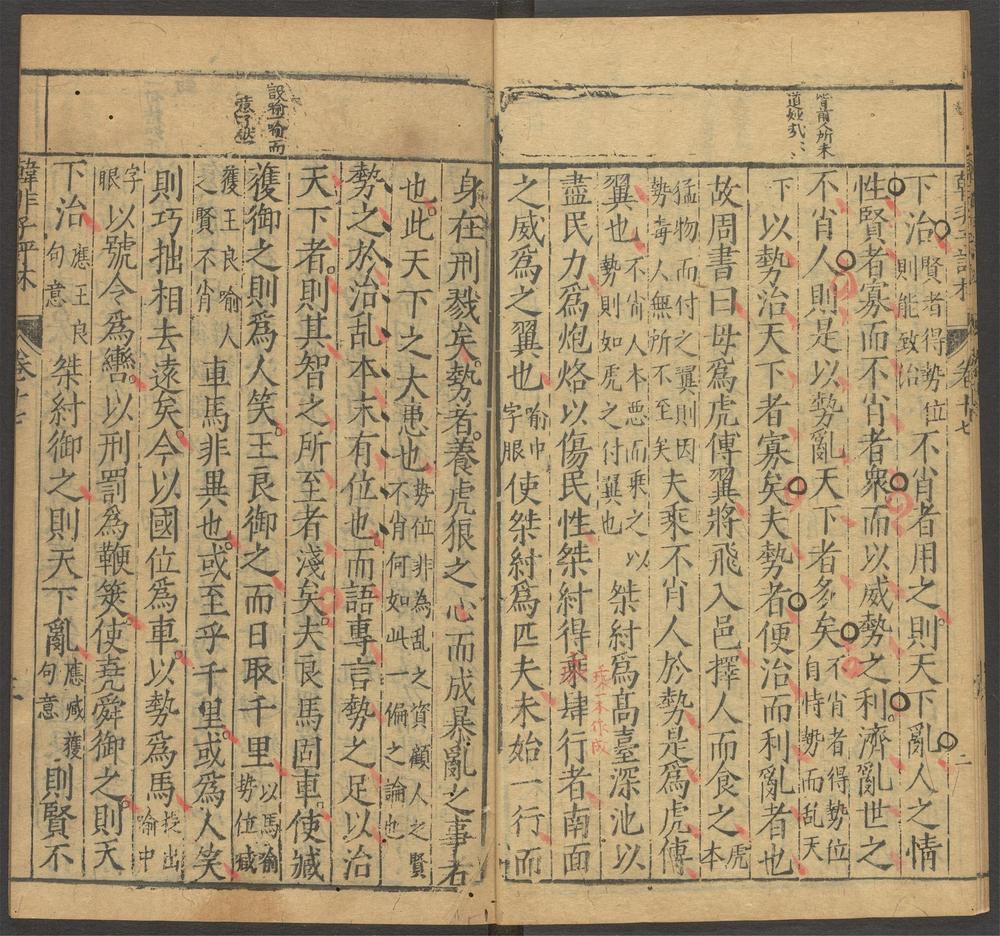 皆前人所未
道婭㦯
韓非子評林
卷十七
二
下治賢者得勢位則能致治不肖者用之則天下亂人之情
性賢者寡而不肖者衆而以威勢之利濟亂世之
不肖人則是以勢亂天下者多矣不肖者得勢位自恃勢而乱天
下以勢治天下者寡矣夫勢者便治而利亂者也
故周書曰毋爲虎傅翼將飛入邑擇人而食之虎本
猛物而付之翼則因勢毒人無所不至矣夫乘不肖人於勢是爲虎傅
翼也不肖人本惡而乘之以勢則如虎之付翼也桀紂爲高臺深池以
盡民力爲炮烙以傷民性桀紂得乘肆行者南面
乘一本作成
之威爲之翼也喻中字眼使桀紂爲匹夫未始一行而
設喻喻而
身在刑戮矣勢者養虎狼之心而成暴亂之事者
也此天下之大患也勢位非為乱之資顧人之賢不肖何如此一偏之論也
勢之於治乱本末有位也而語專言勢之足以治
天下者則其智之所至者淺矣夫良馬固車使臧
獲御之則爲人笑王良御之而日取千里以馬喻勢位臧
獲王良喻人之賢不肖車馬非異也或至乎千里或爲人笑
則巧拙相去遠矣今以國位爲車以勢爲馬提出喻中
字眼以號令爲轡以刑罰爲鞭筴使堯舜御之則天
下治應王良句意桀紂御之則天下亂應臧獲句意則賢不
韓非子評林
卷十七